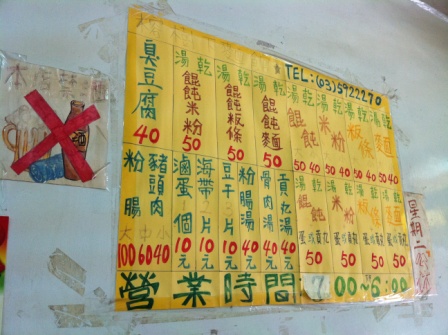 TEL:(03)5922270
臭豆腐
40
湯 乾
餛飩米粉
50
湯 乾
餛飩粄條
50
湯 乾
餛飩麵
50
湯 乾
餛飩
50 40
湯 乾
米粉
50 40
湯 乾
粄條
50 40
湯 乾
麵
50 40
粉腸
豬頭肉
大 中 小
100 60 40
滷蛋
個
10元
海帶
片
10元
豆干
片
10元
粉腸湯
40元
骨肉湯
40元
貢丸湯
40元
湯 乾
餛飩
蛋或貢丸
50
湯 乾
米粉
蛋或貢丸
50
湯 乾
粄條
蛋或貢丸
50
湯 乾
麵
蛋或貢丸
50
營業時間 7:00~6:00
星期二